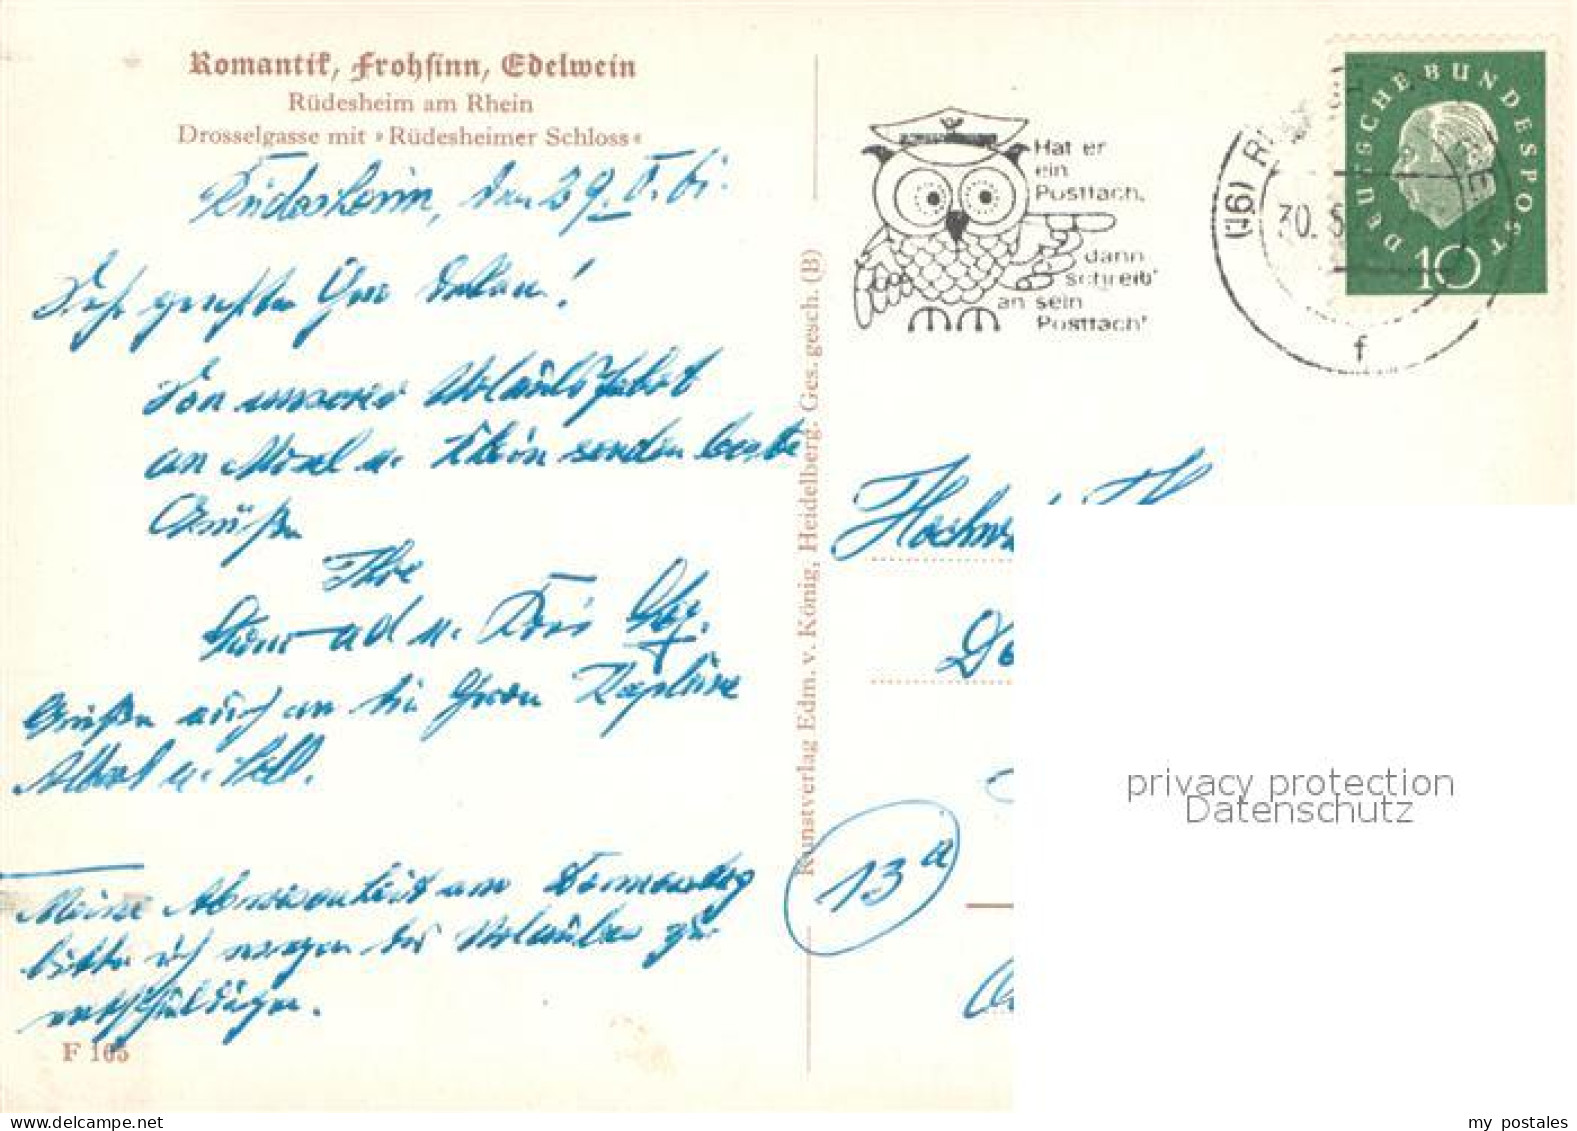 Romantik, Frohsinn, Edelwein
Rüdesheim am Rhein
Drosselgasse mit »Rüdesheimer Schloss«
Rüdesheim, den 29. V. 61.
Sehr geehrter Herr Dekan!
Von unserer Urlaubsfahrt
an Mosel u. Rhein senden beste
Grüße
Ihre
ad u.
Grüße auch an die Herren Kapläne
Albert u. Soll.
Meine Abwesenheit am Donnerstag
bitte ich wegen des Urlaubes zu
entschuldigen.
F 165
Kunstverlag Edm. v. König, Heidelberg. Ges. gesch. (B)
Hat er
ein
Postfach,
dann
schreib'
an sein
Postfach!
(16)
30. 5
f
DEUTSCHE BUNDESPOST
10
13a
privacy protection
Datenschutz
my postales